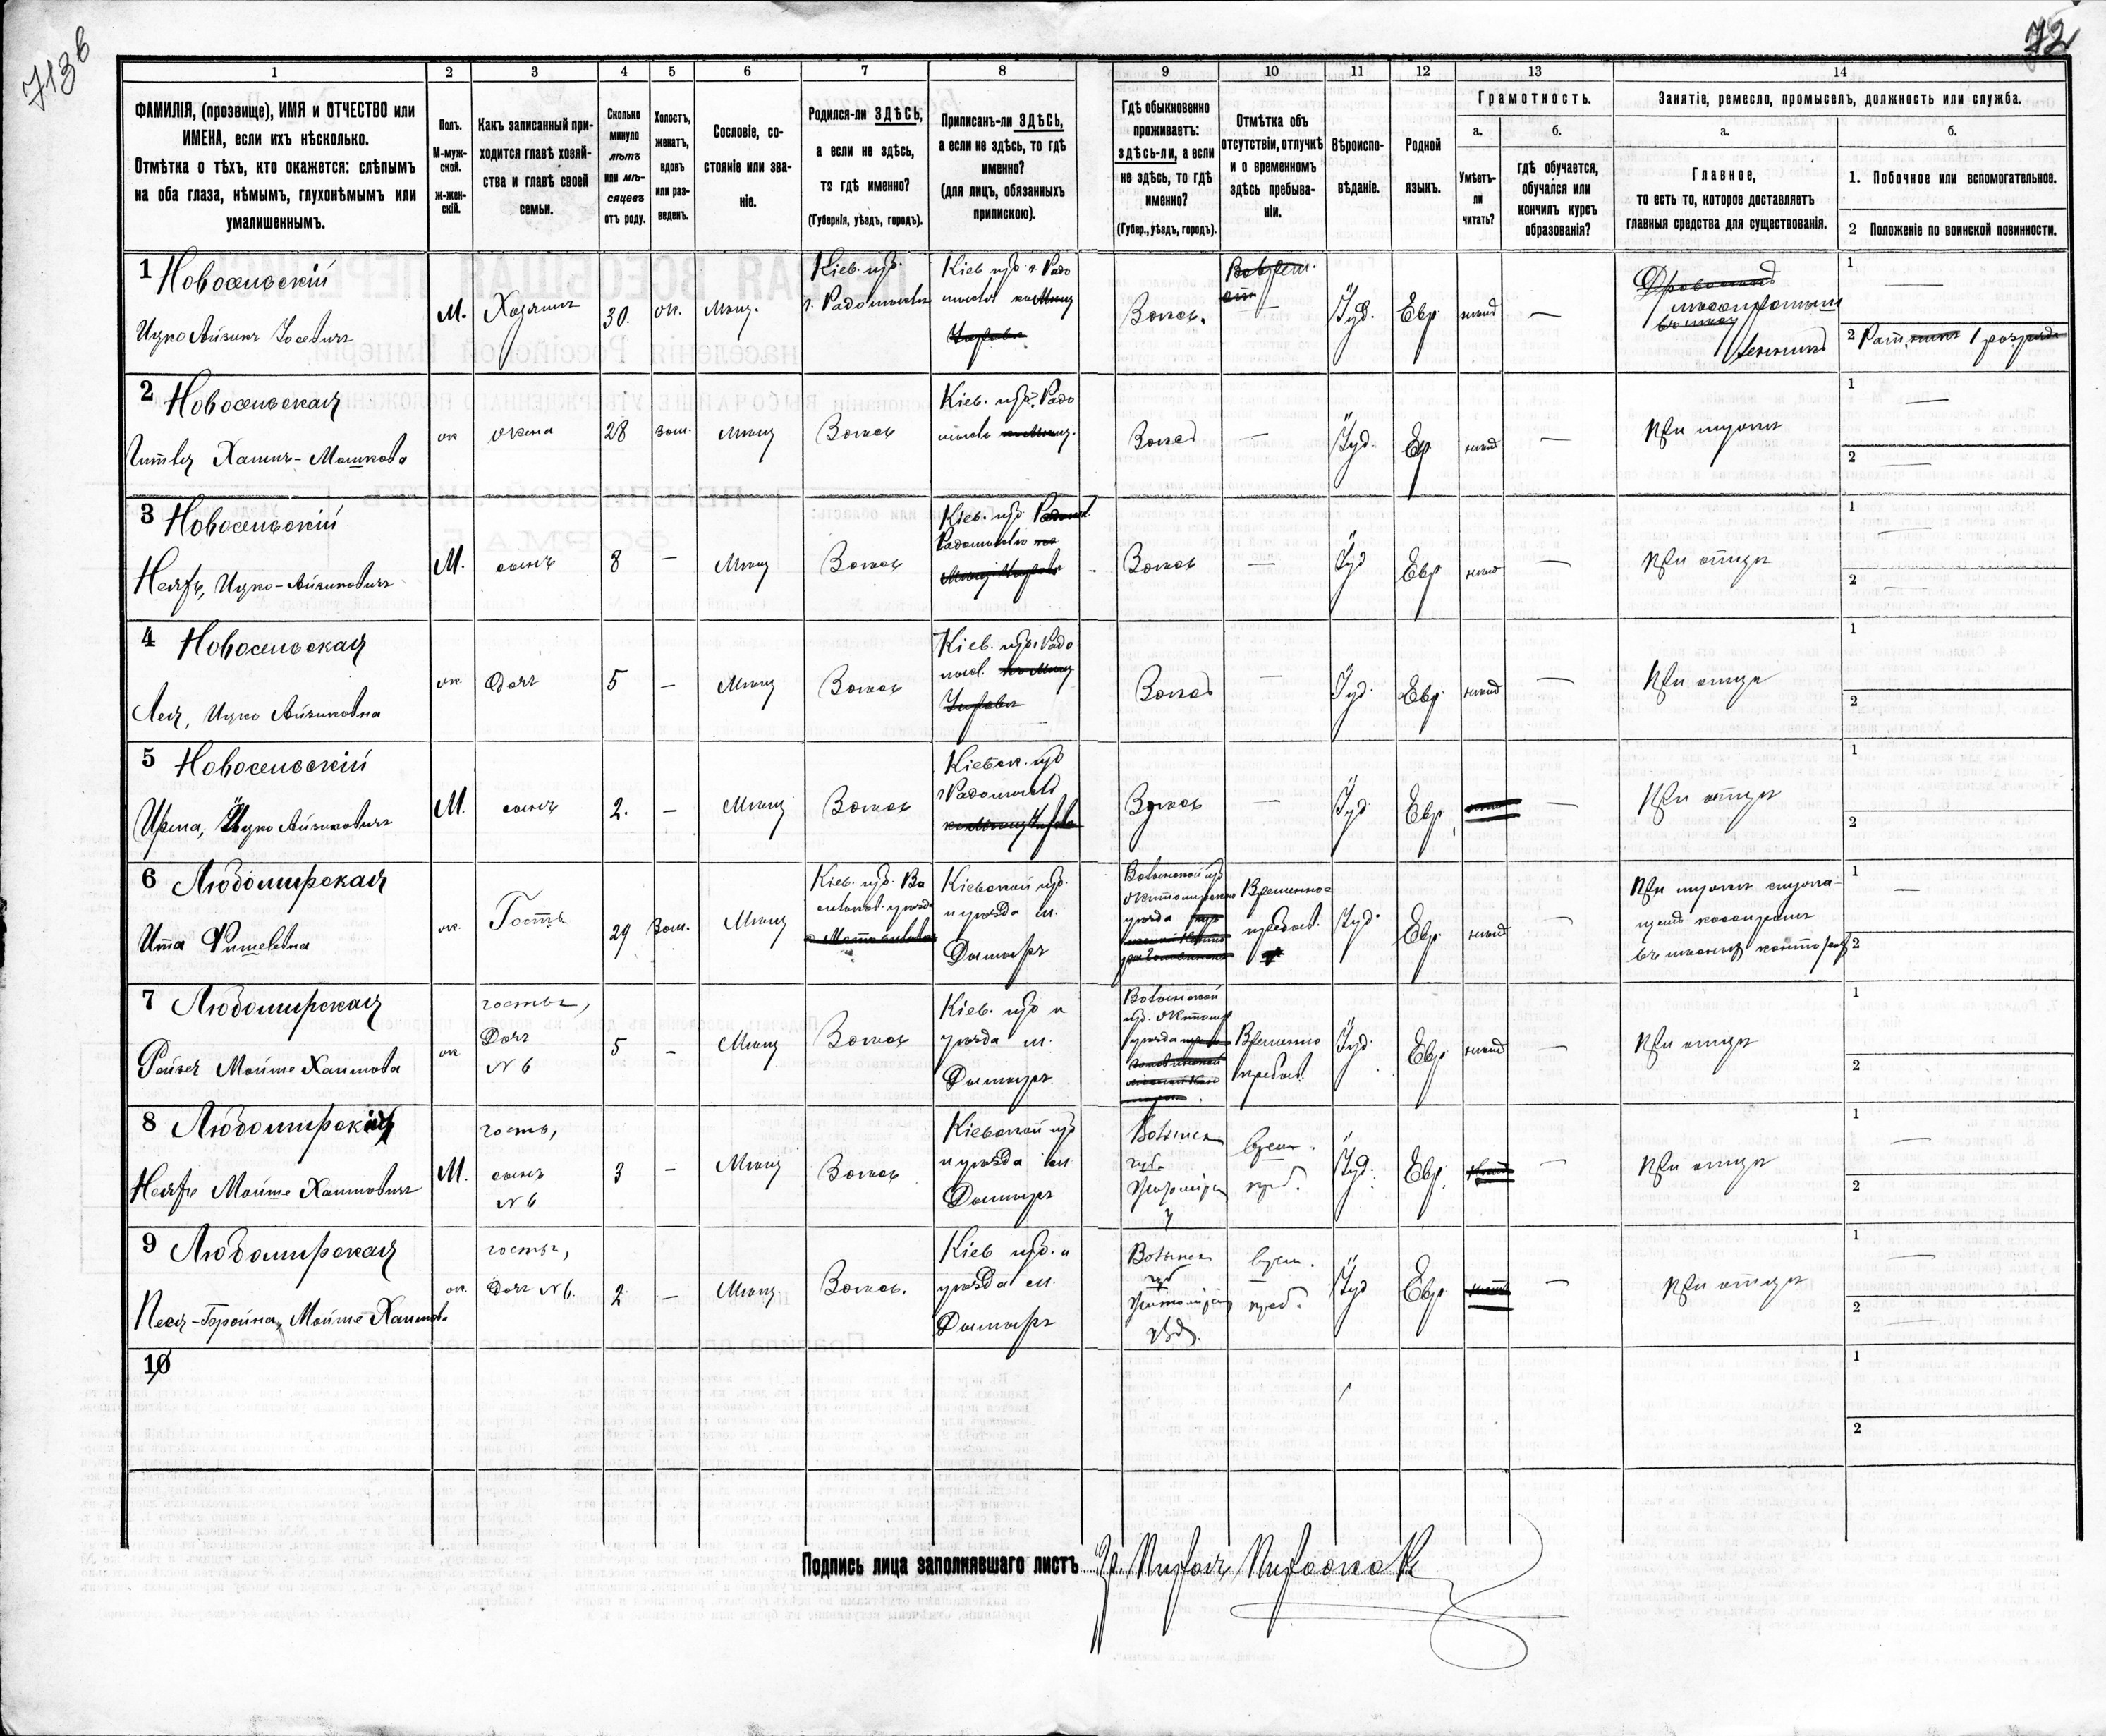 713б
72
1
2
3
4
5
6
7
8
9
10
11
12
13
14
ФАМИЛІЯ, (прозвище), ИМЯ и ОТЧЕСТВО или
ИМЕНА, если ихъ нѣсколько.
Отмѣтка о тѣхъ, кто окажется: слѣпымъ
на оба глаза, нѣмымъ, глухонѣмымъ или
умалишеннымъ.
Полъ.
М-муж-
ской.
ж-жен-
скій.
Какъ записанный при-
ходится главѣ хозяй-
ства и главѣ своей
семьи.
Сколько
минуло
лѣтъ
или мѣ-
сяцевъ
отъ роду.
Холостъ,
женатъ,
вдовъ
или раз-
веденъ.
Сословіе, со-
стояніе или зва-
ніе.
Родился-ли ЗДѢСЬ,
а если не здѣсь,
то гдѣ именно?
(Губернія, уѣздъ, городъ).
Приписанъ-ли ЗДѢСЬ,
а если не здѣсь, то гдѣ
именно?
(для лицъ, обязанныхъ
припискою).
Гдѣ обыкновенно
проживаетъ:
здѣсь-ли, а если
не здѣсь, то гдѣ
именно?
(Губер., уѣздъ, городъ).
Отмѣтка объ
отсутствіи, отлучкѣ
и о временномъ
здѣсь пребыва-
ніи.
Вѣроиспо-
вѣданіе.
Родной
языкъ.
Грамотность.
а.
Умѣетъ-
ли
читать?
б.
гдѣ обучается,
обучался или
кончилъ курсъ
образованія?
Занятіе, ремесло, промыселъ, должность или служба.
а.
Главное,
то есть то, которое доставляетъ
главныя средства для существованія.
б.
1. Побочное или вспомогательное.
2 Положеніе по воинской повинности.
1 Новосельскій
Ицко Айзикъ Іосевичъ
М.
Хозяинъ
30.
ж.
Мѣщ.
Кіев. губ.
г. Радомысль
Кіев губ. г. Радо
мысль
Здѣсь.
—
Іуд.
Евр.
—
1 —
2 Ратникъ 1 разряда
2 Новосельская
Хаимъ-Мошкова
ж
жена
28
зам.
Мѣщ
Здѣсь
Кіев. губ. г. Радо
мысль
Здѣсь
—
Іуд.
Ев.
—
При мужѣ
1 —
2 —
3 Новосельскій
Ицко-Айзиковичъ
М.
сынъ
8
—
Мѣщ
Здѣсь
Кіев. губ
Радомысль
Здѣсь
—
Іуд
Евр
—
При отцѣ
1 —
2 —
4 Новосельская
Лея, Ицко Айзиковна
ж
Дочь
5
—
Мѣщ
Здѣсь
Кіев. губ. г. Радо
мысл.
Здѣсь
—
Іуд.
Евр.
—
При отцѣ
1
2
5 Новосельскій
Ицко Айзиковичъ
М.
сынъ
2.
—
Мѣщ
Здѣсь
Кіевск. губ
г Радомысль
Здѣсь
—
Іуд
Евр.
—
При отцѣ
1
2
6 Любомирская
Ита Фишелевна
ж.
Гостья
29
Зам.
Мѣщ
Кіев. губ. Ва
сильков. уѣзда
Кіевской губ.
и уѣзда м.
Дымеръ
Волынской губ
Житомирскаго
уѣзда
Временно
пребыв.
Іуд.
Евр.
—
При мужѣ
въ лѣсной конторѣ
1 —
2
7 Любомирская
Рейзя Мойше Хаимова
ж
гостья,
Дочь
№ 6
5
—
Мѣщ
Здѣсь
Кіев. губ и
уѣзда м.
Дымеръ.
Волынской
губ. Житомир
уѣзда
Временно
пребыв.
Іуд.
Евр.
—
При отцѣ
1
2
8 Любомирскій
Мойше Хаимовичъ
М.
гость,
сынъ
№ 6
3
—
Мѣщ
Здѣсь
Кіевской губ
и уѣзда м.
Дымеръ
Волынск
губ.
Житомірск
у
врем.
преб.
Іуд.
Евр.
—
При отцѣ
1 —
2
9 Любомирская
Песя-Бройна, Мойше Хаимова
ж.
гостья,
Дочь № 6.
2
—
Мѣщ.
Здѣсь.
Кіев губ. и
уѣзда м.
Дымеръ
Волынск
губ
Житомірск
уѣзд
врем.
преб.
Іуд
Евр
—
При отцѣ
1 —
2
10
1
2
Подпись лица заполнявшаго листъ